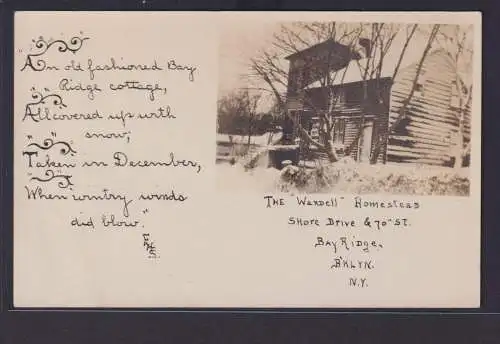 "An old fashioned Bay
Ridge cottage,
All covered up with
snow;
Taken in December,
When wintry winds
did blow."
The "Wardell" Homestead
Shore Drive & 70" St.
Bay Ridge,
B'klyn.
N.Y.